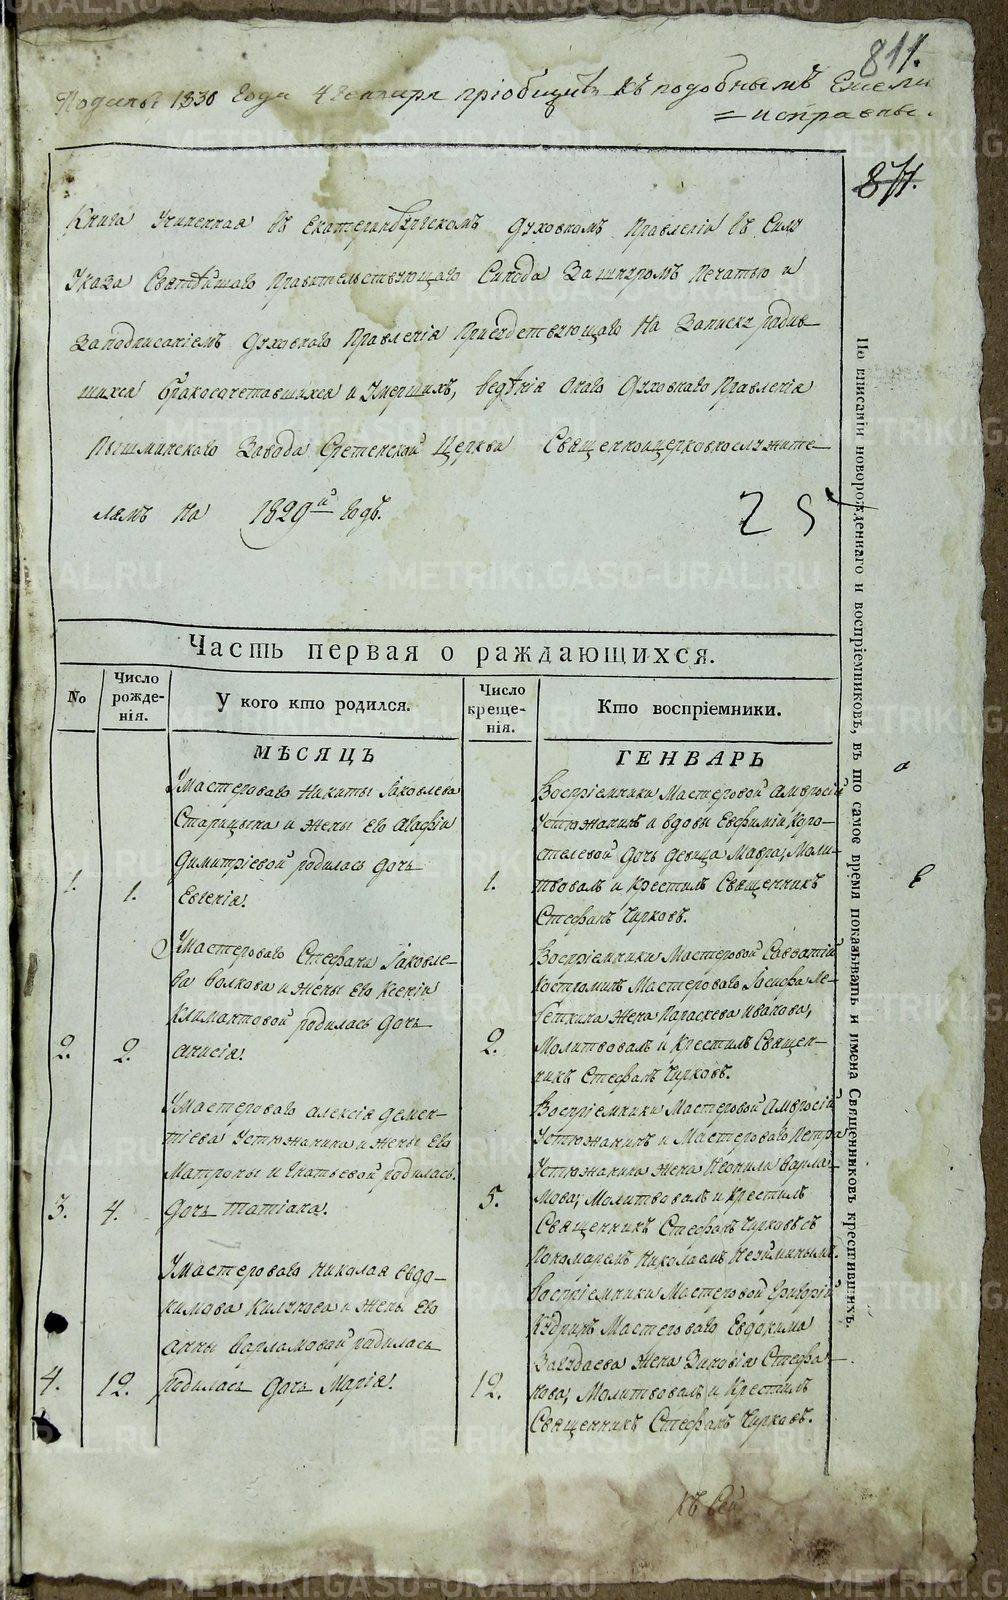 811.
Подана 1830 Года 4 Генваря пріобщить къ подобнымъ Ежели
=исправны.
871.
Книга Учиненная въ Екатеринбургскомъ Духовномъ Правленіи въ Силу
Указа Святѣйшаго Правительствующаго Синода За шнуромъ Печатью и
Заподписаніемъ Духовнаго Правленія Присудствующаго На Записку родив
шихся бракосочетавшихся и Умершихъ, ведѣнія Онаго Духовнаго Правленія
Пышминскаго Завода Сретенской Церкви Священноцерковнослужите-
лямъ На 1829й Годъ.
25
Часть первая о раждающихся.
No
Число рожде-нія.
У кого кто родился.
Число креще-нія.
Кто воспріемники.
МѢСЯЦЪ
ГЕНВАРЬ
1.
1.
Умастероваго Никиты Іаковлева
Старицына и жены Его Агафіи
Димитріевой родилась дочь
Евгенія.
1.
Воспріемники Мастеровой Амвросій
Устюжанинъ и вдовы Евфиміи Коро-
стелевой дочь девица Мавра, Моли-
твовалъ и Крестилъ Священникъ
Стефанъ Чирковъ.
2.
2.
Умастероваго Стефана Іаковле-
ва Волкова и жены Его Ксеніи
Климантовой родилась дочь
Анисія.
2.
Воспріемники Мастеровой Савватій
Костоминъ Мастероваго Іосифа Ле-
Геткина Жена Параскева Иванова,
Молитвовалъ и Крестилъ Священ-
никъ Стефанъ Чирковъ.
3.
4.
Умастероваго Алексія Демен-
тіева Устюжанина и жены Его
Матроны Игнатьевой родилась
дочь Татіана.
5.
Воспріемники Мастеровой Амвросій
Устюжанинъ и Мастероваго Петра
Устюжанина жена Неонила Варла-
мова, Молитвовалъ и Крестилъ
Священникъ Стефанъ Чирковъ съ
Пономаремъ Николаемъ
4.
12.
Умастероваго Николая Евдо-
кимова и жены Его
Анны Варламовой родилась
родилась дочь Марія.
12.
Воспріемники Мастеровой Григорій
Кудринъ Мастероваго Евдокима
Жена Зиновія Стефа-
нова, Молитвовалъ и Крестилъ
Священникъ Стефанъ Чирковъ.
По вписаніи новорожденнаго и воспріемниковъ, въ то самое время показывать и имена Священниковъ крестившихъ.
къ сей
METRIKI.GASO-URAL.RU